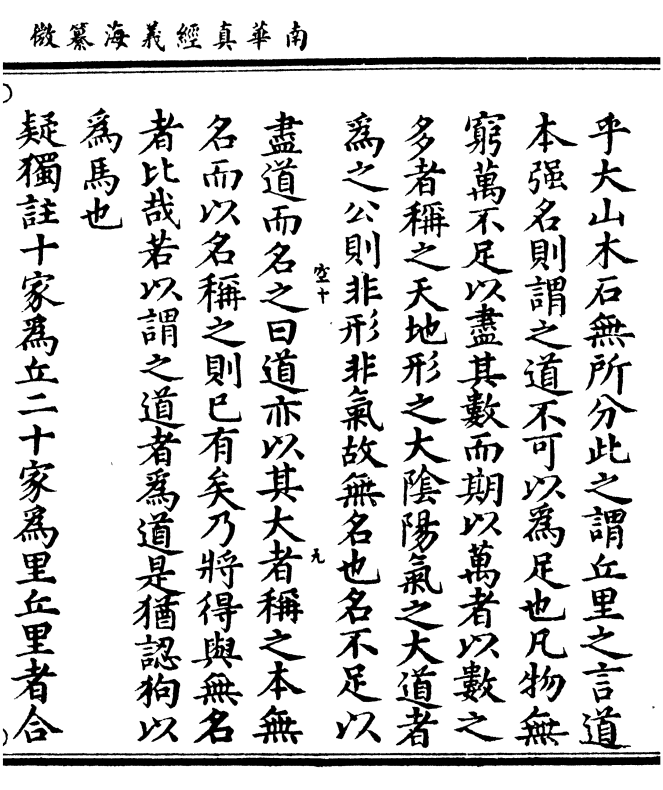 南華真經義海纂微
乎大山木石無所分此之謂丘里之言道
本强名則謂之道不可以為足也凡物無
窮萬不足以盡其數而期以萬者以數之
多者稱之天地形之大陰陽氣之大道者
為之公則非形非氣故無名也名不足以
盡道而名之曰道亦以其大者稱之本無
名而以名稱之則已有矣乃將得與無名
者比哉若以謂之道者為道是猶認狗以
為馬也
疑獨註十家為丘二十家為里丘里者合